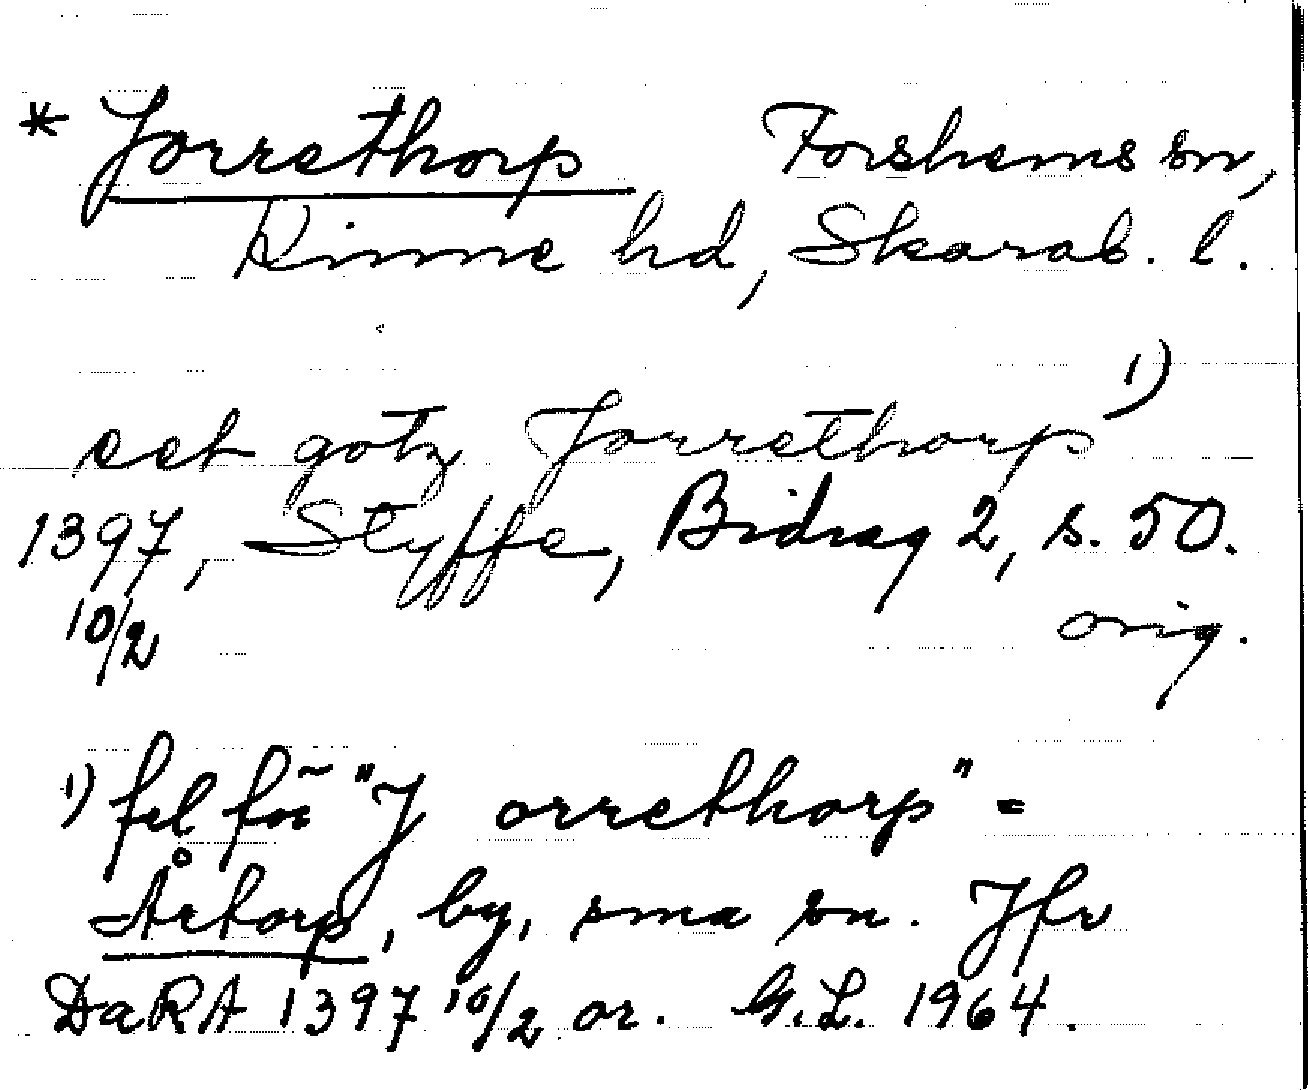 * Jorrethorp Forshems sn,
Kinne hd, Skarab. l.
eet gotz Jorrethorp 1)
1397, Styffe, Bidrag 2, s. 50.
10/2 orig.
1) fel för "J orrethorp" =
Årtorp, by, sma sn. Jfr
DaRA 1397 10/2 or. G.L. 1964.